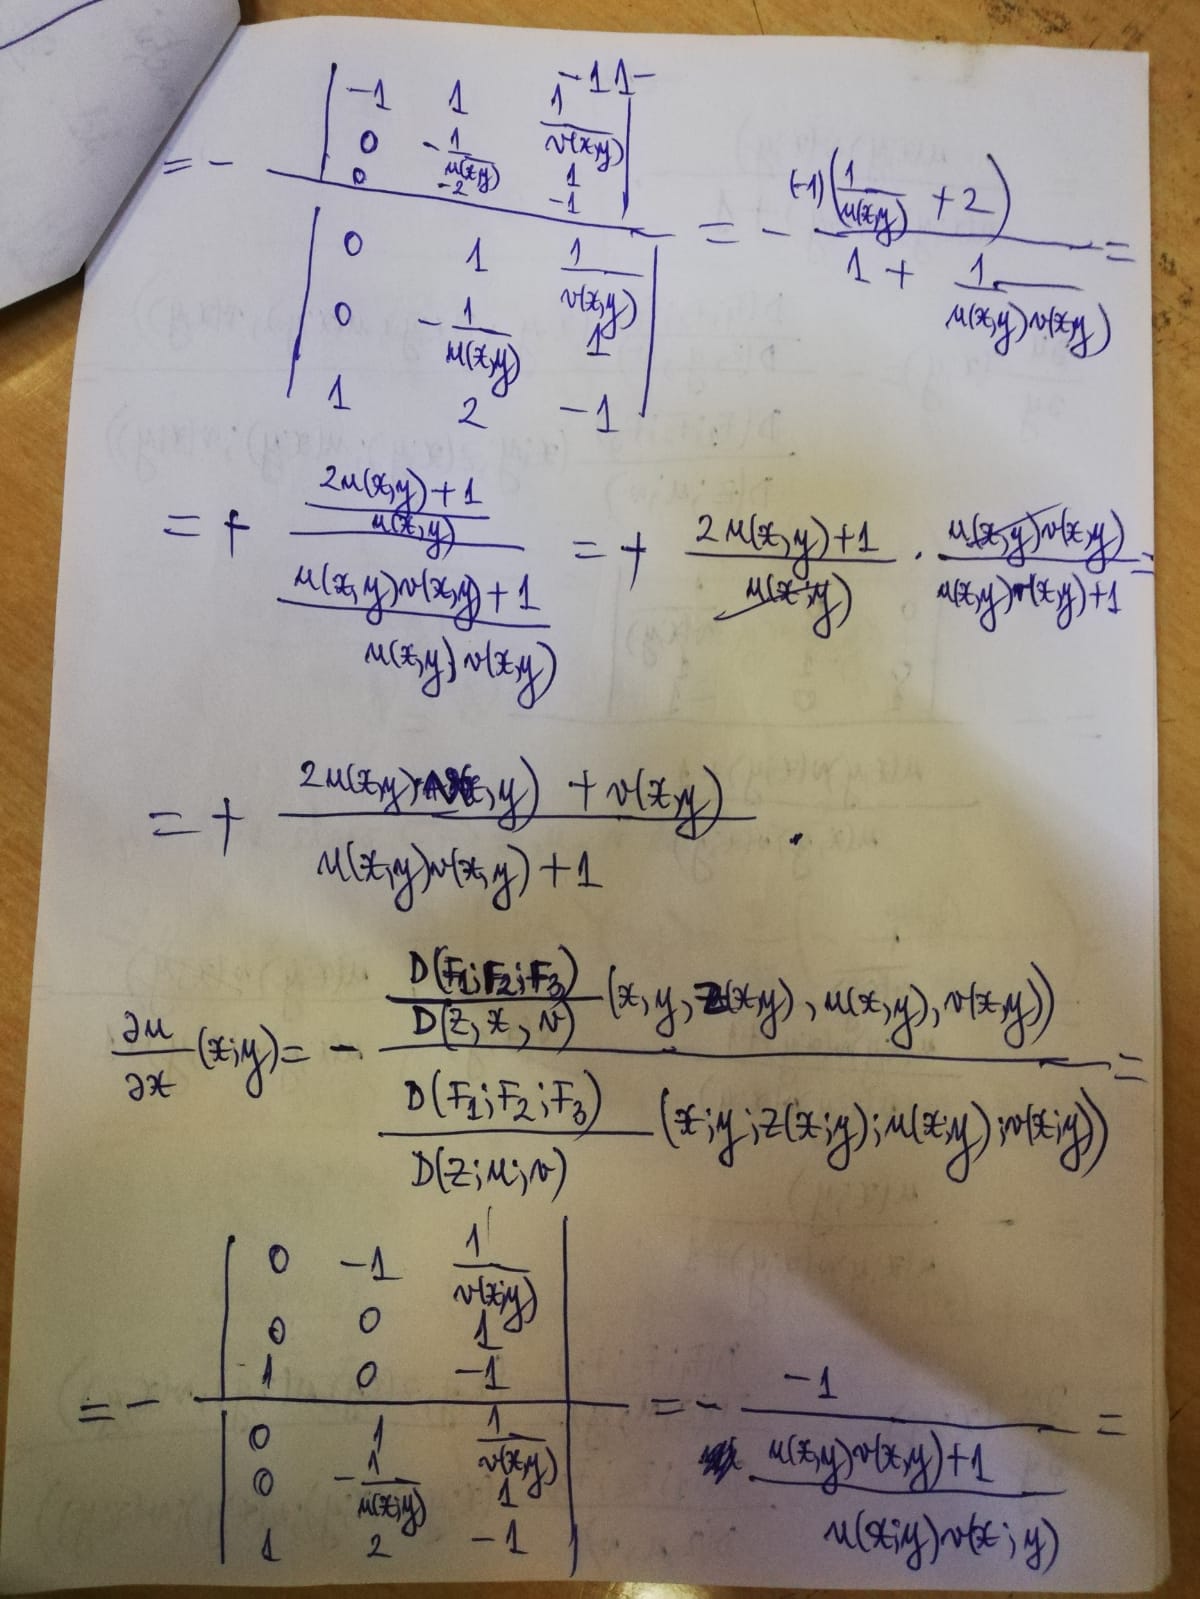 -1 1 -
-1 1 1/v(x,y)
0 -1/u(x,y) 1
0 -2 -1
= -
0 1 1/v(x,y)
0 -1/u(x,y) 1
1 2 -1
= - (-1)(1/u(x,y) + 2)
1 + 1/u(x,y)v(x,y) =
= + 2u(x,y)+1
u(x,y)
u(x,y)v(x,y)+1
u(x,y)v(x,y)
= + 2u(x,y)+1 / u(x;y) · u(x,y)v(x,y) / u(x,y)v(x,y)+1 =
= + 2u(x,y) + v(x,y)
u(x,y)v(x,y)+1 .
∂u/∂x (x;y) = - D(F1;F2;F3)/D(z,x,v) (x,y,z(x,y),u(x,y),v(x,y)) =
D(F1;F2;F3)/D(z;u;v) (x;y;z(x;y);u(x;y);v(x;y))
0 -1 1/v(x;y)
0 0 1
1 0 -1
= -
0 1 1/v(x,y)
0 -1/u(x;y) 1
1 2 -1
= - -1
u(x,y)v(x,y)+1 =
u(x;y)v(x;y)